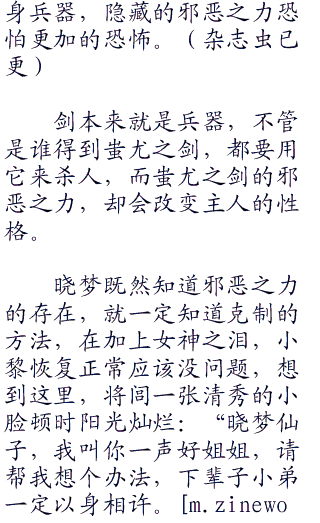 身兵器，隐藏的邪恶之力恐
怕更加的恐怖。（杂志虫已
更）
剑本来就是兵器，不管
是谁得到蚩尤之剑，都要用
它来杀人，而蚩尤之剑的邪
恶之力，却会改变主人的性
格。
晓梦既然知道邪恶之力
的存在，就一定知道克制的
方法，在加上女神之泪，小
黎恢复正常应该没问题，想
到这里，将闾一张清秀的小
脸顿时阳光灿烂：“晓梦仙
子，我叫你一声好姐姐，请
帮我想个办法，下辈子小弟
一定以身相许。[m.zinewo